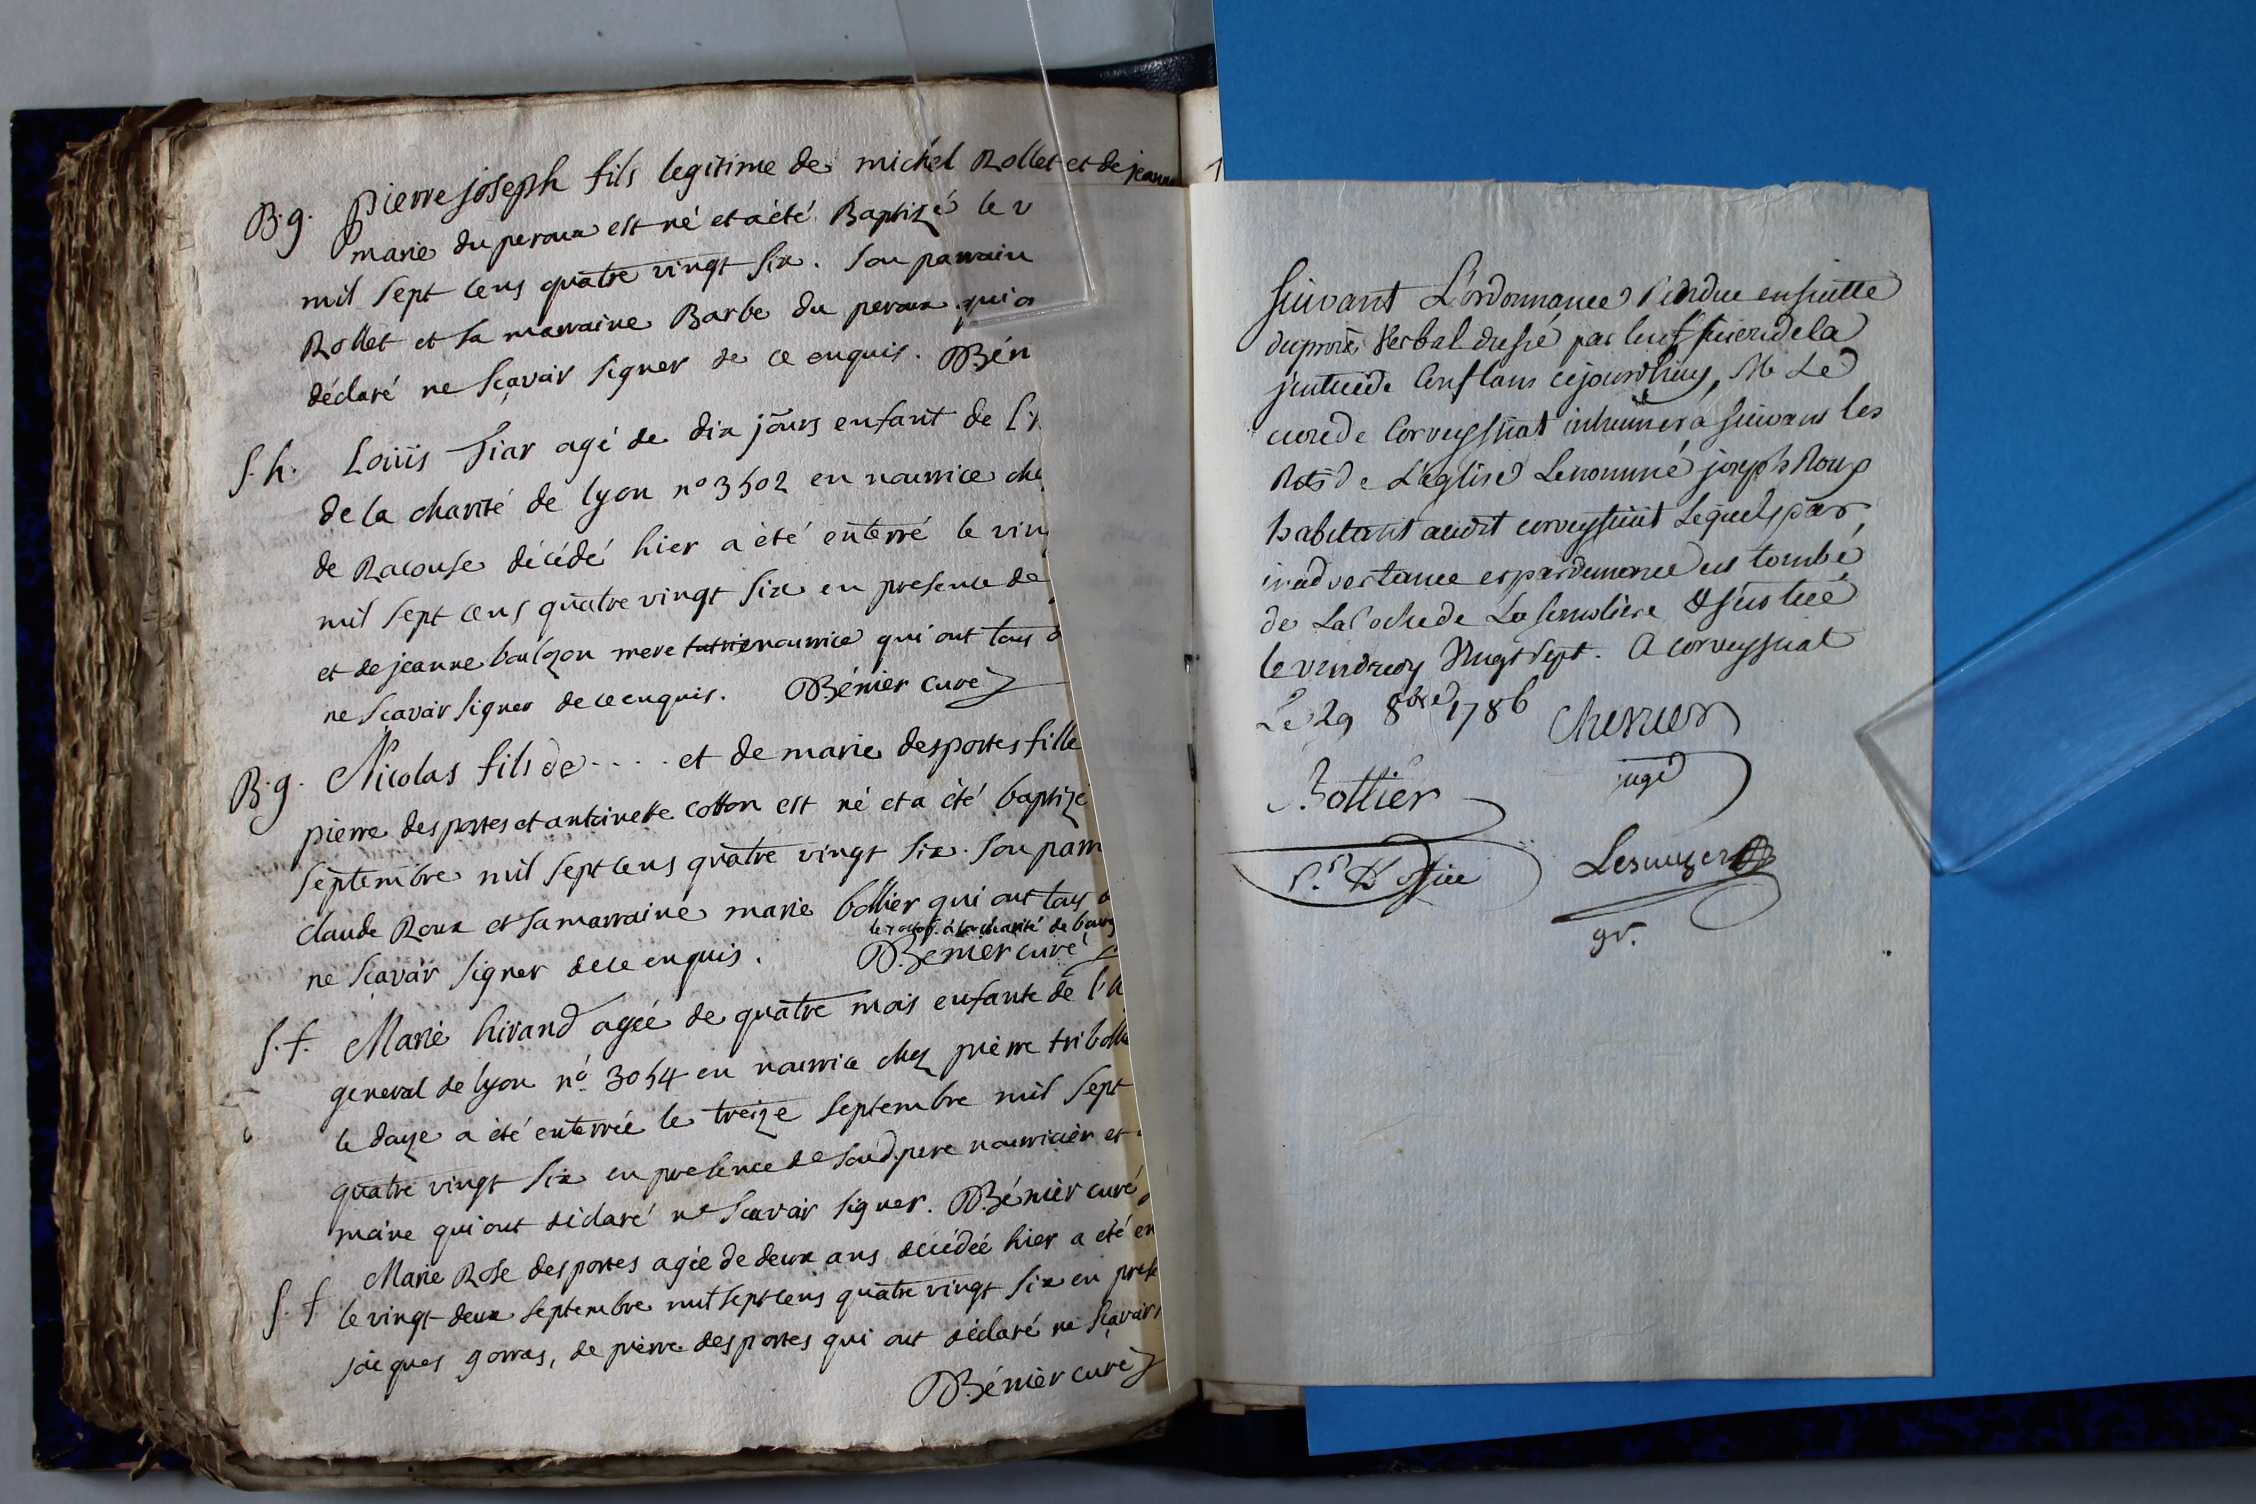 B.g. Pierre joseph fils legitime de michel Rollet et de jeanne
marie du peroux est né et a été Baptizé le v
mil sept cens quatre vingt six. son parrain
Rollet et sa marraine Barbe du peroux qui o
déclaré ne sçavoir signer de ce enquis. Bén
S.h. Loüis fiar agé de dix jours enfant de l'h
de la charité de lyon n° 3502 en nourrice che
de Racouse décédé hier a été enterré le vin
mil sept cens quatre vingt six en presence de
et de jeanne boulozon mere nourrice qui ont tous d
ne sçavoir signer de ce enquis. Bénier curé
B.g. Nicolas fils de .... et de marie desportes fille
pierre desportes et antoinette cotton est né et a été baptizé
septembre mil sept cens quatre vingt six. son parr
claude Roux et sa marraine marie bollier qui ont tous d
à la charité de bourg
ne sçavoir signer de ce enquis. Bénier curé
S.f. Marie hivand agée de quatre mois enfante de l'h
general de lyon n° 3054 en nourrice chez pierre tribolle
le douze a été enterrée le treize septembre mil sept
quatre vingt six en presence de sond. pere nourricier et
maire qui ont déclaré ne sçavoir signer. Bénier curé
S.f. Marie Rose desportes agée de deux ans décédée hier a été en
le vingt-deux septembre mil sept cens quatre vingt six en prese
jacques gorras, de pierre desportes qui ont déclaré ne sçavoir
Bénier curé
1
suivant L'ordonnance Rendue ensuitte
du proces Verbal dressé par les officiers de la
justice de Conflans cejourdhuy, M Le
curé de Corveyssiat inhumera suivant les
Rits de L'église Le nommé joseph Roux
habitant audit corveyssiat Lequel par
inadvertance et par demence est tombé
de La Roche de La semoliere & s'est tué
le vendredy Vingt sept. A corveyssiat
Le 29 8bre 1786
Chevrier
juge
Bottier
P.r D'office
Lesuuzer
gr.